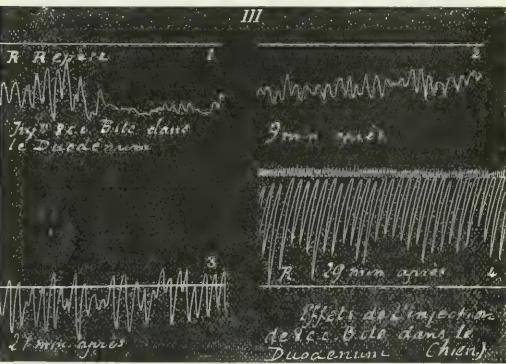 III
R Repère 1
Inj^on 8 c.c. Bile dans
le Duodenum
2
9 min après
3
27 min. après
R 29 min après 4
Effets de l'injection
de 8 c.c. Bile dans le
Duodenum Chien